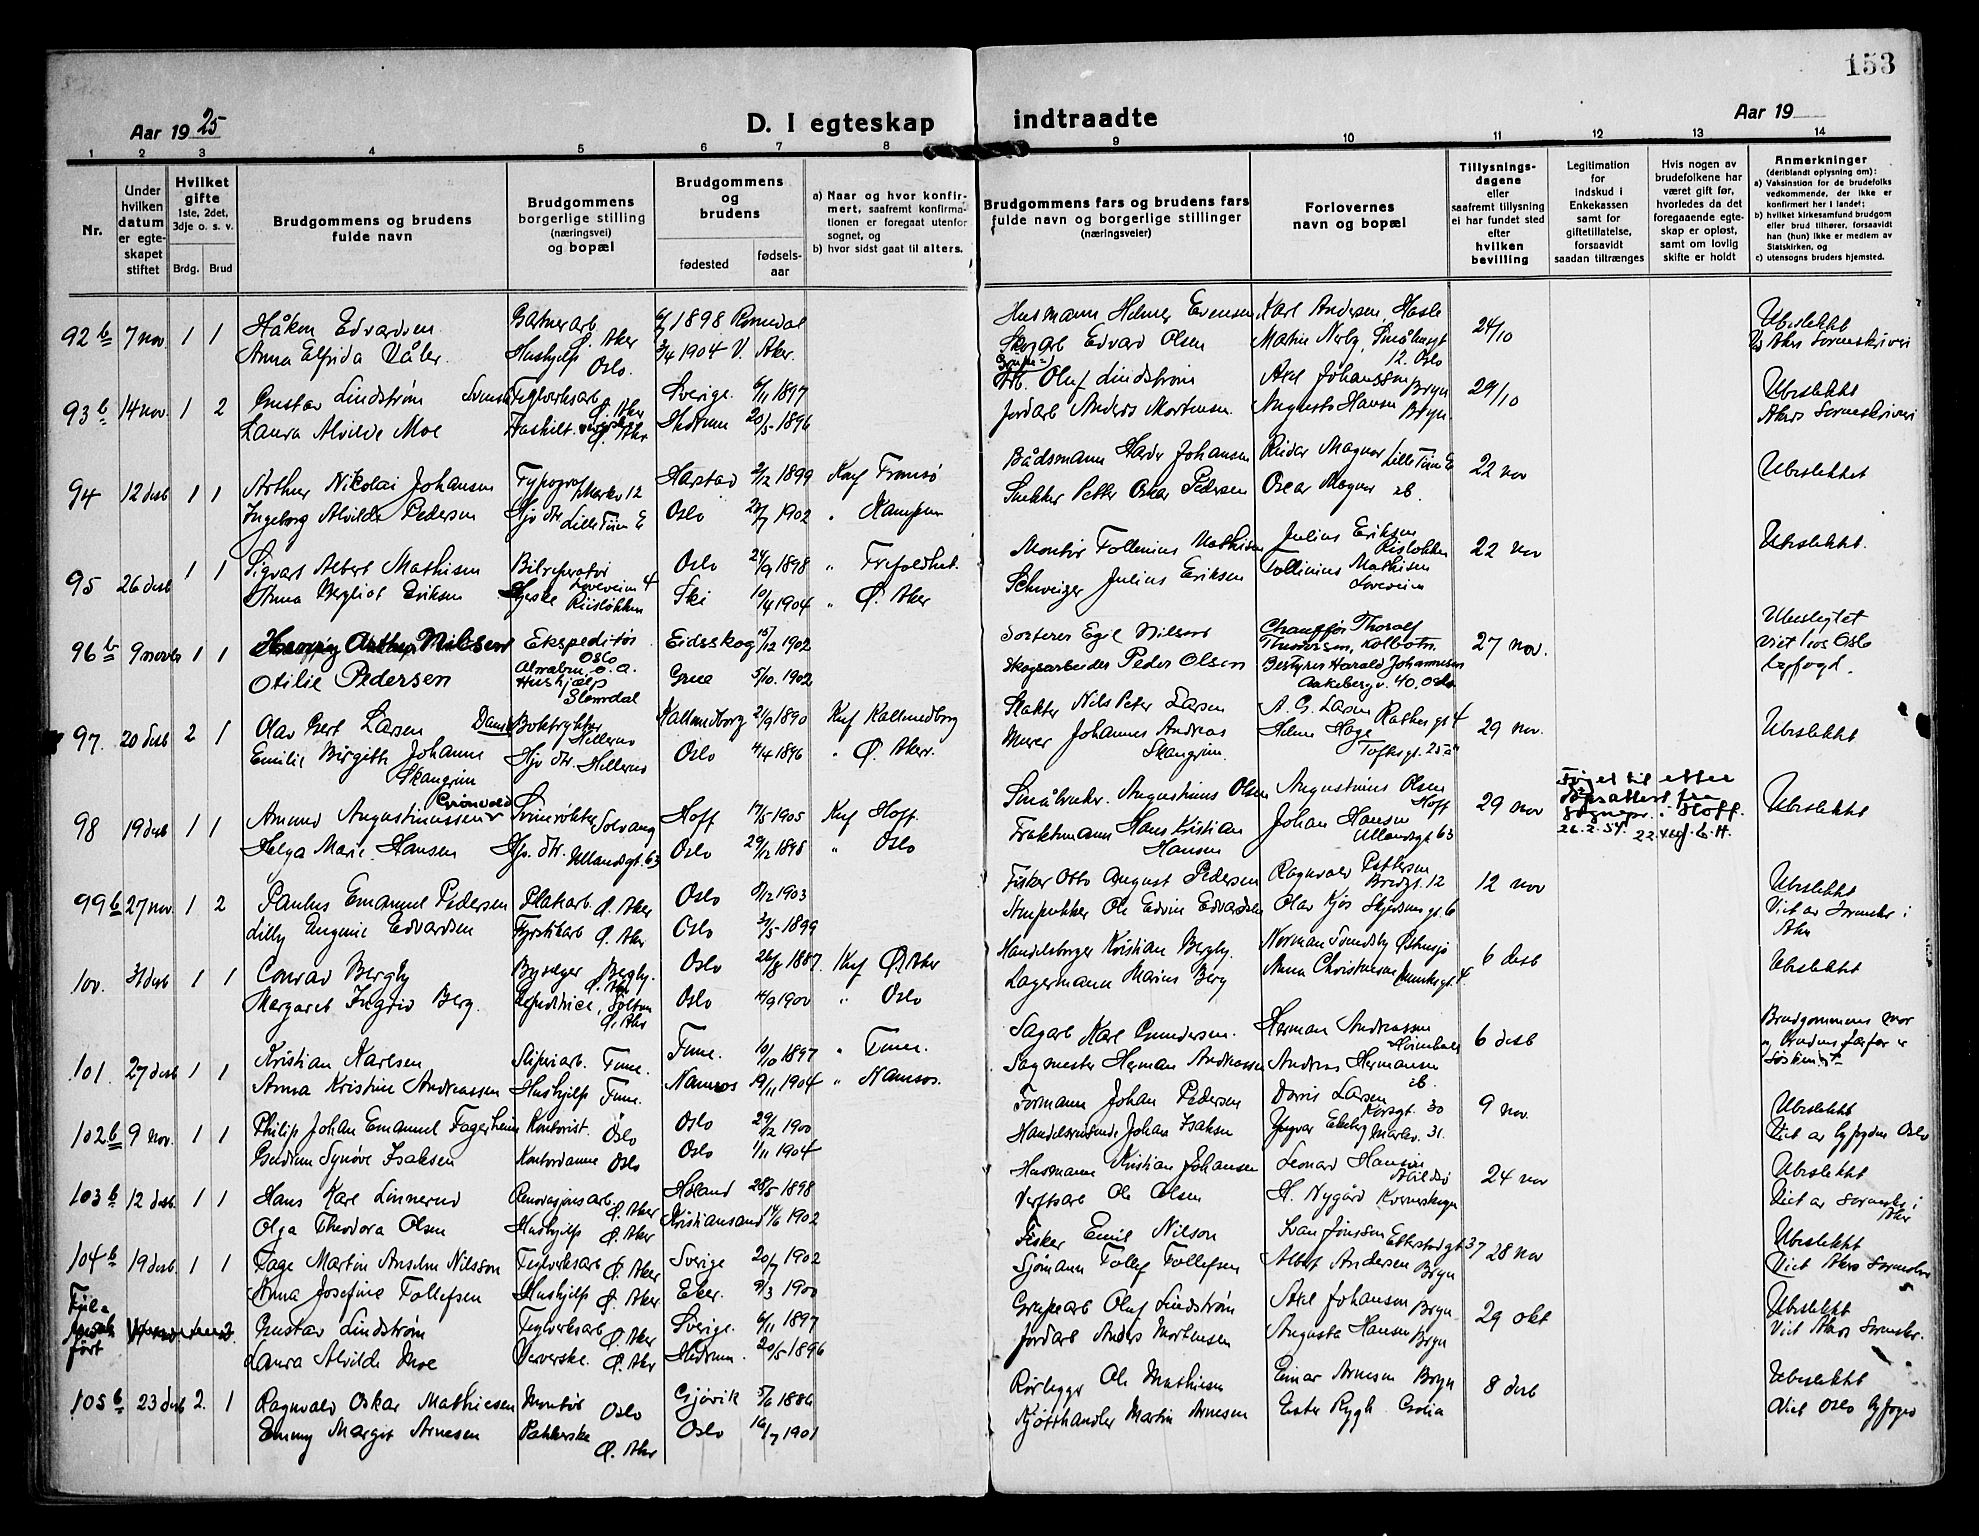 153
Aar 19 25
D. I egteskap indtraadte
Aar 19
1 2 3 4 5 6 7 8 9 10 11 12 13 14
Nr.
Under hvilken datum er egteskapet stiftet
Hvilket gifte
1ste, 2det, 3dje o. s. v.
Brdg. Brud
Brudgommens og brudens fulde navn
Brudgommens borgerlige stilling (næringsvei) og bopæl
Brudgommens og brudens
fødested
fødselsaar
a) Naar og hvor konfirmert, saafremt konfirmationen er foregaat utenfor sognet, og
b) hvor sidst gaat til alters.
Brudgommens fars og brudens fars fulde navn og borgerlige stillinger (næringsveier)
Forlovernes navn og bopæl
Tillysningsdagene eller saafremt tillysning ei har fundet sted efter hvilken bevilling
Legitimation for indskud i Enkekassen samt for giftetillatelse, forsaavidt saadan tiltrænges
Hvis nogen av brudefolkene har været gift før, hvorledes da det foregaaende egteskap er opløst, samt om lovlig skifte er holdt
Anmerkninger (deriblandt oplysning om):
a) Vaksinstion for de brudefolks vedkommende, der ikke er konfirmert her i landet;
b) hvilket kirkesamfund brudgom eller brud tilhører, forsaavidt han (hun) ikke er medlem av Statskirken, og
c) utensogns bruders hjemsted.
92 b 7 nov 1 1 Håkon Edvardsen 1898 Romedal Karl Andersen, Hasle 24/10 Ubeslekta
Anna Elfrida Våler Hushjelp Oslo. 3/4 1904 V. Aker. Edvard Olsen 12. Oslo
93 b 14 nov. 1 2 Gustav Lindstrøm Svensk Teglverksarb Ø. Aker Sverige. 6/11 1897 Oluf Lindstrøm Axel Johansson Bryn 29/10 Ubeslekta
Laura Alvilde Moe Ø. Aker Hedrum 20/5 1896 Jordarb Anders Mortensen. Augusta Hansen Bryn Akers Sorenskriveri
94 12 desb 1 1 Arthur Nikolai Johansen Typograf Markv 12 Harstad 2/12 1899 Knf Tromsø Bådsmann Johansen Reidar Magnus 22 nov Ubeslektet
Ingeborg Alvilde Pedersen Oslo 1902 " Kampen Snekker Petter Oskar Pedersen Oscar Magnus
95 26 desb 1 1 Sigvart Albert Mathisen Bilreperatør Oslo 24/9 1898 " Trefoldhet. Montør Tollinius Mathisen Julius Eriksen Risløkken 22 nov Ubeslektet.
Anna Bergliot Eriksen Risløkken Ski 10/4 1904 " Ø. Aker Julius Eriksen Tollinius Mathisen
96 b 9 novb 1 1 Henning Arthur Nilsen Ekspeditør Oslo Eidsskog 15/12 1902 Egil Nilsen Chauffør Thoralf Thoresen, Kolbotn 27 nov. Ubeslegtet viet hos Oslo byfogd.
Otilie Pedersen Hushjælp Slemdal Grue 5/10. 1902 Skogsarbeider Peder Olsen Bestyrer Harald Johannesen Aakebergv. 40, Oslo
97. 20 desb 2 1 Olav Gert Larsen Dansk Boktrykker Hellerud Kallundborg 21/9 1890 Knf Kallundborg Slakter Nils Peter Larsen A. G. Larsen Rathkesgt 4 29 nov. Ubeslektet
Emilie Birgitte Johanne Skaugrim Hellerud Oslo 4/4 1896 " Ø. Aker. Murer Johannes Andreas Skaugrim. Toftesgt. 25 a
98 19 desb 1 1 Amund Augustinussen Grønvold Solvang Hoff 17/5 1905 Knf Hoff Småbruker. Augustinus Olsen Augustinus Olsen Hoff 29 nov Føiet til etter dåpsattest fra Sognepr. i Hoff. 26.2.54. Ubeslektet
Helga Marie Hansen Ullandsgt. 63 Oslo 29/12 1898 " Oslo Hans Kristian Hansen Johan Hansen Ullandsgt 63
99 b 27 nov. 1 2 Paulus Emanuel Pedersen Platearb. Ø. Aker Oslo 8/12 1903 Fisker Otto August Pedersen Ragnvald Pettersen Bredgt. 12 12 nov Ubeslektet
Lilly Eugenie Edvardsen Fyrstikkarb Ø. Aker Oslo 31/5 1899 Ole Edvin Edvardsen Olav Kjøs Viet av Sorenskr i Aker
100. 31 desb 1 1 Conrad Bergby Bergby. Ø. Aker Oslo 26/8 1887. Knf Ø. Aker Handelsborger Kristian Bergby. 6 desb Ubeslektet
Margaret Ingrid Berg. Ø. Aker Oslo 14/9 1900 " Oslo Lagermann Marius Berg Anna Christensen Munksgt. 4
101. 27 desb 1 1 Kristian Karlsen Sliperiarb. Tune. Tune. 10/10 1897 " Tune. Sagarb Karl Gundersen. Herman Andreassen 6 desb Brudgommens mor og brudens farfar er søskend
Anna Kristine Andreassen Hushjelp Tune. Namsos 19/11 1904 " Namsos. Sagmester Herman Andreassen Andreas Hermansen
102 b 9 nov. 1 1 Philip Johan Emanuel Fagerheim Kontorist. Oslo Oslo 29/2 1900 Formann Johan Pedersen Larsen Korsgt. 30 9 nov. Ubeslektet
Gudrun Synøve Isaksen Kontordame Oslo Oslo 1/11 1904 Handelsreisende Johan Isaksen Yngvar Ekeberg Markv. 31. Viet av byfogden Oslo
103 b 12 desb. 1 1 Hans Karl Linnerud Renovasjonsarb Ø. Aker Høland 28/5 1898 Husmann Kristian Johansen Leonard Hansen 24 nov Ubeslektet
Olga Theodora Olsen Hushjelp Ø. Aker Kristiansand 14/6 1902 Verftsarb Ole Olsen H. Nygård Viet av Sorenskr i Aker
104 b 19 desb. 1 1 Tage Martin Anselm Nilsson Teglverksarb Ø. Aker Sverige 20/7 1902 Fisker Emil Nilson Ivan Jonsson Etterstadgt 37 28 nov Ubeslektet
Anna Josefine Tollefsen Hushjelp Ø. Aker Eker. 9/3 1900 Sjømann Tollef Tollefsen Albert Andersen Bryn Viet Akers Sorenskr
Feilaktig ført Gustav Lindstrøm Teglverksarb Ø. Aker Sverige. 6/11 1897 Grubearb Oluf Lindstrøm Axel Johansen Bryn 29 okt Ubeslektet
Laura Alvilde Moe Ververske. Ø. Aker Hedrum. 20/5 1896 Jordarb Anders Mortensen Augusta Hansen Bryn Viet Akers Sorenskr.
105 b 23 desb 2. 1 Ragnvald Oskar Mathiesen Montør Oslo Gjøvik 5/6 1886 Rørlegger Ole Mathiesen Einar Arnesen Bryn 8 desb Ubeslektet
Emmy Margit Arnesen Pakkerske Ø. Aker Oslo 16/7 1901 Kjøtthandler Martin Arnesen Ester Rygh Viet Oslo byfogd